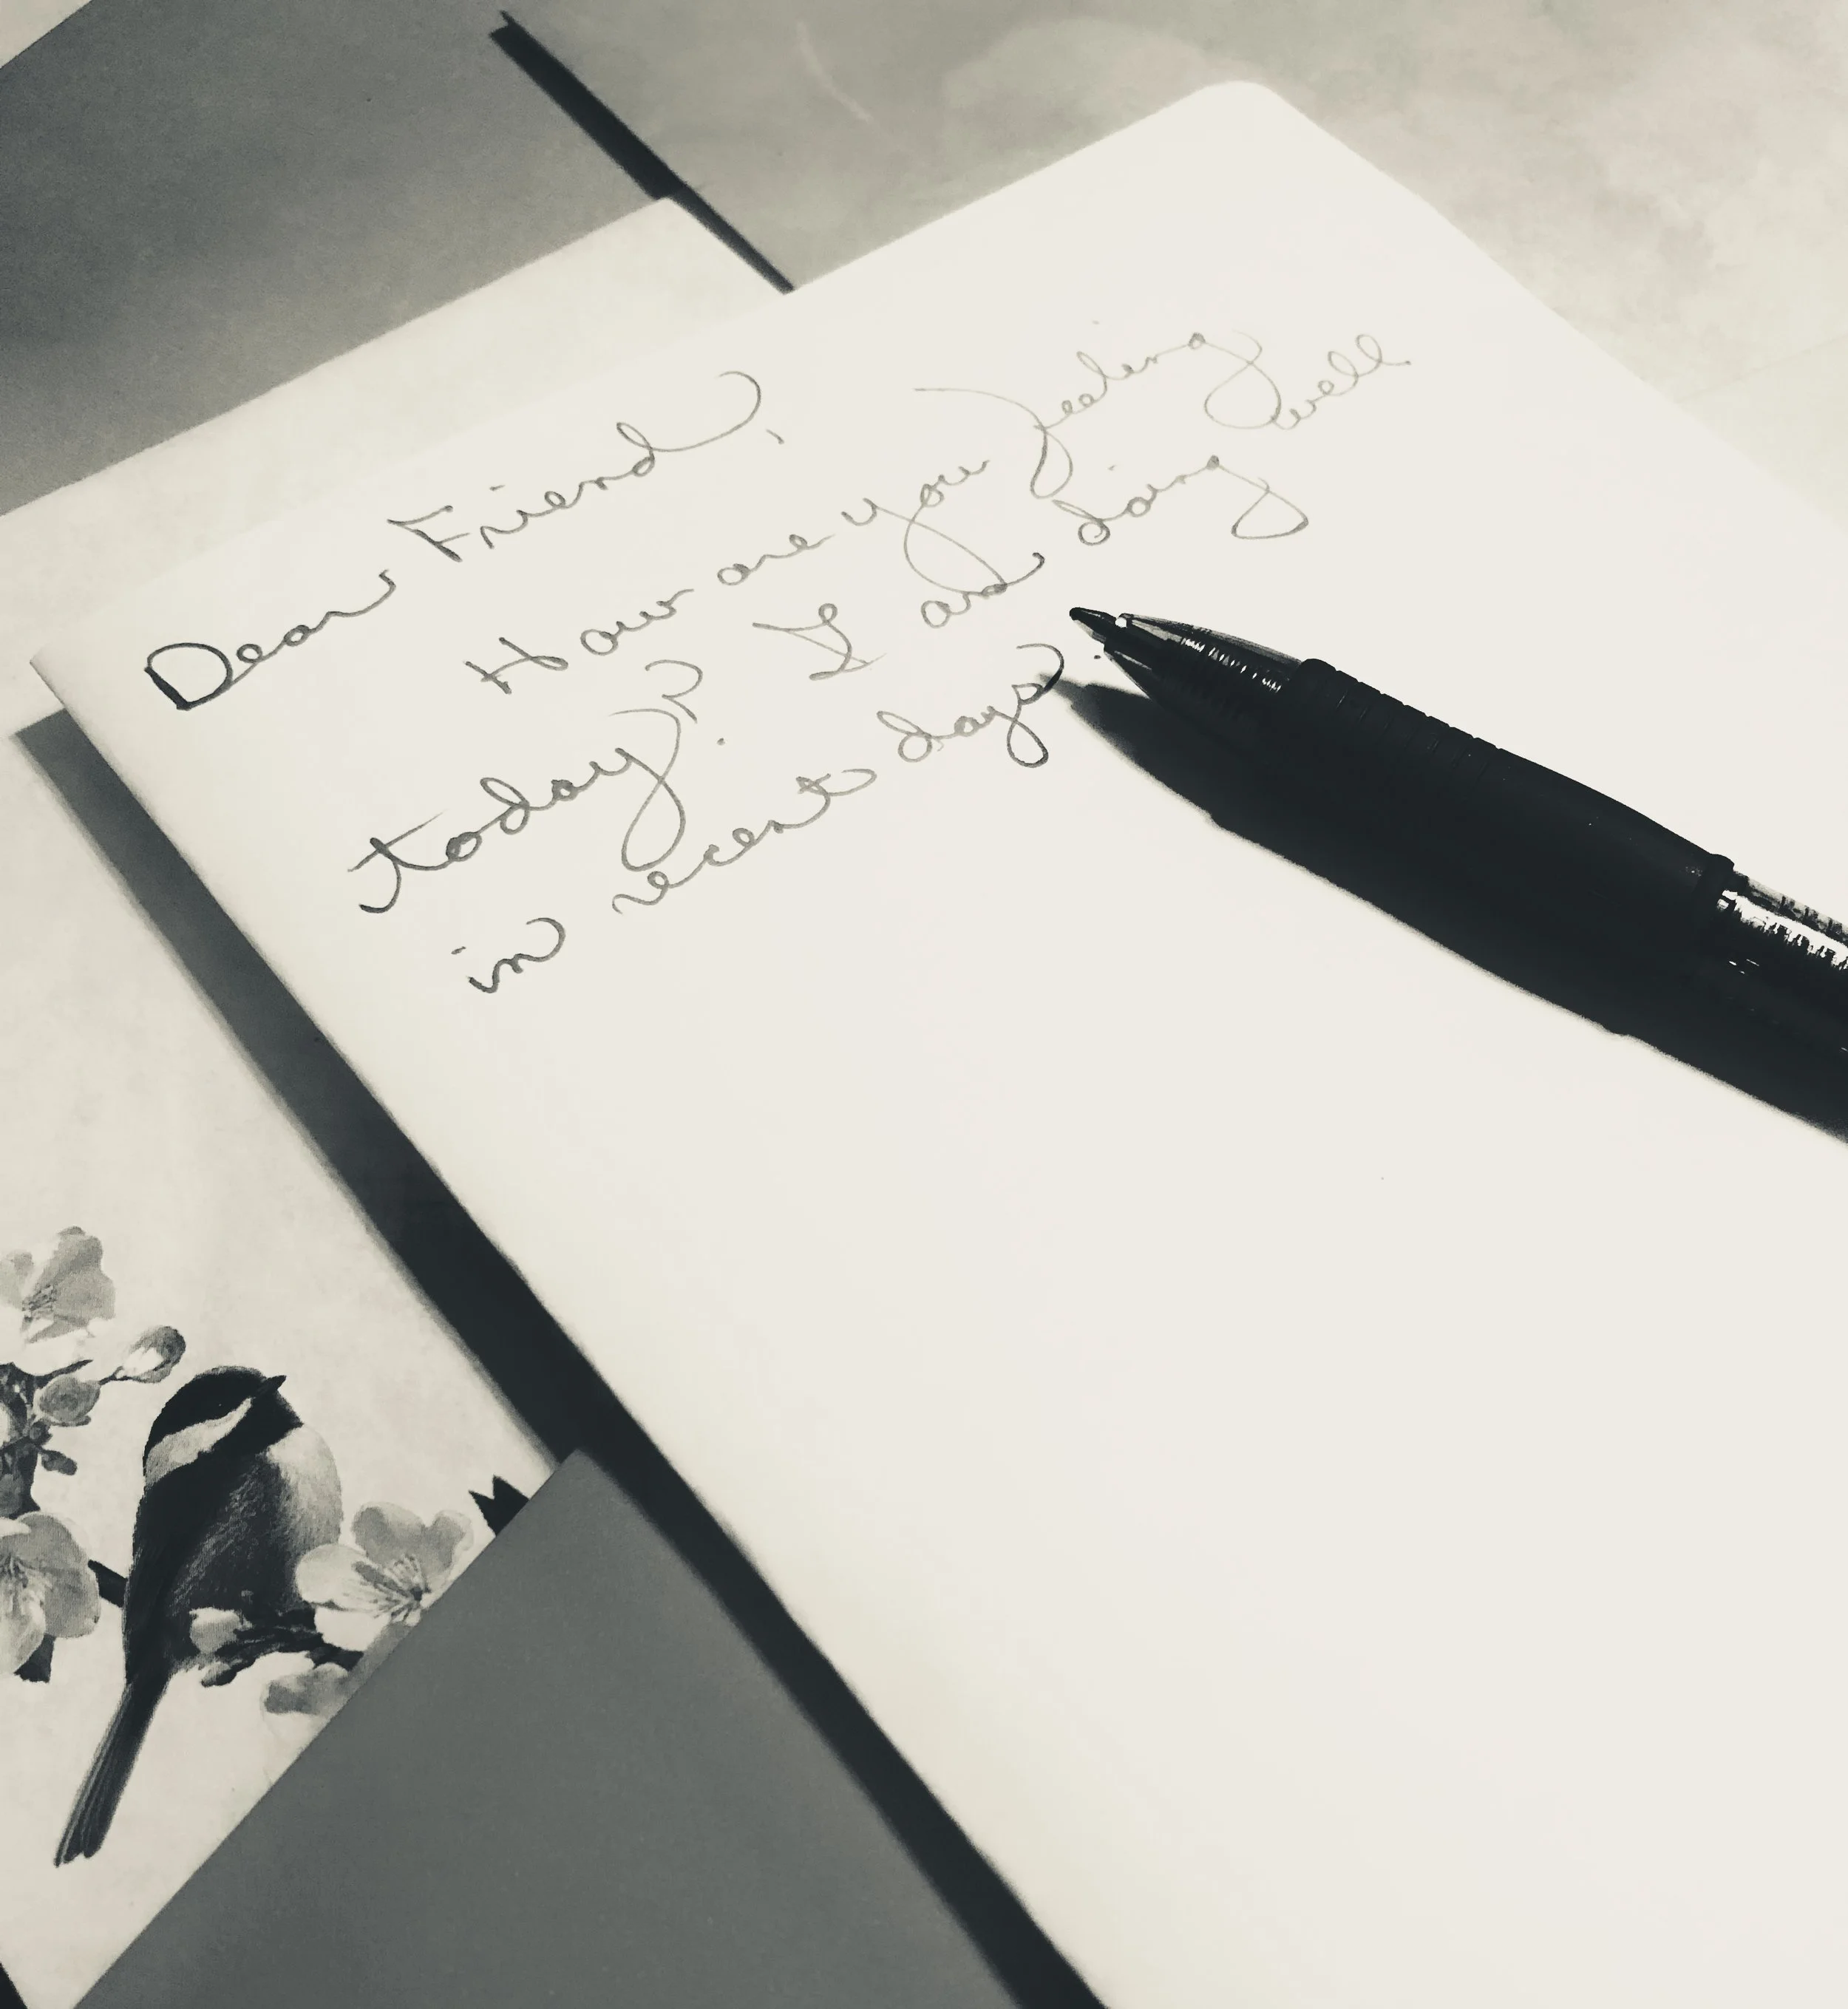 Dear Friend,
How are you feeling
today? I am doing well
in recent days